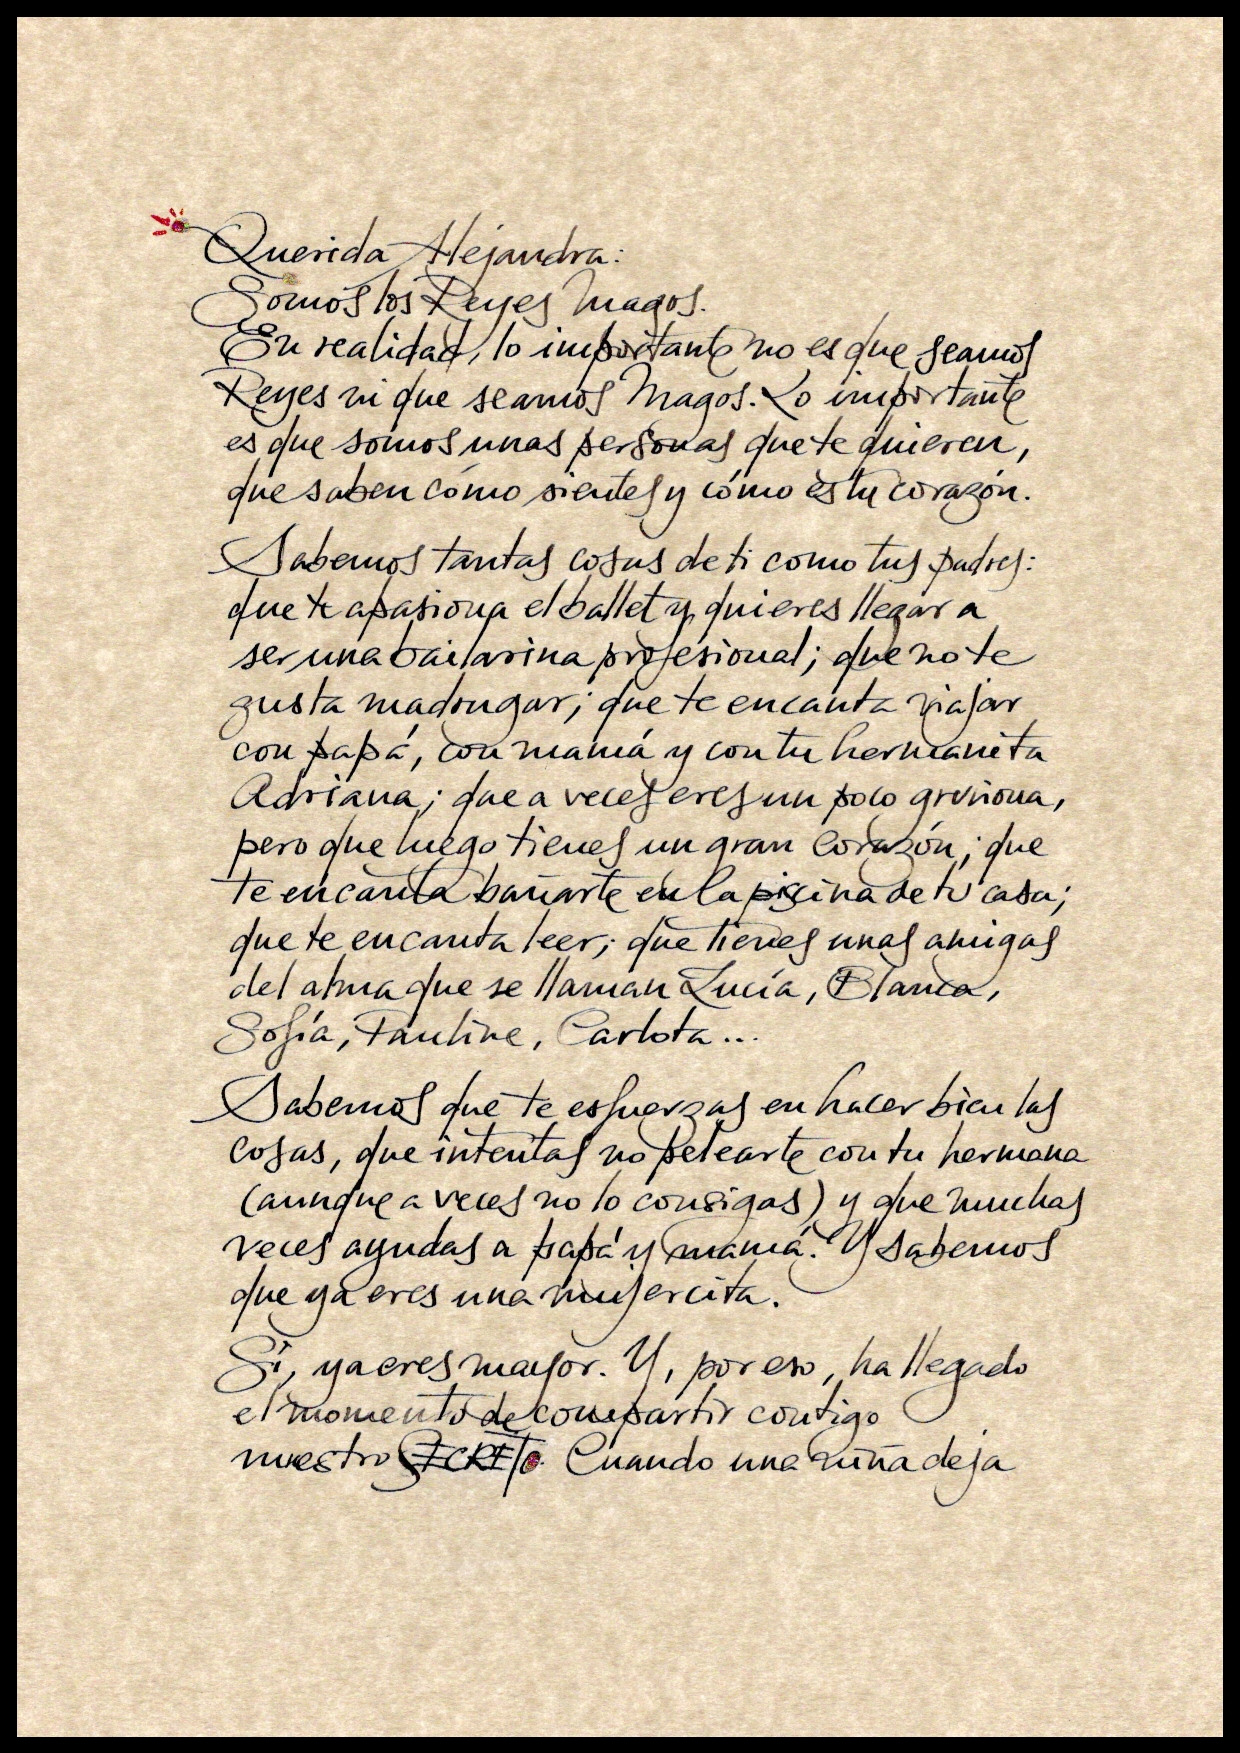 Querida Alejandra:
Somos los Reyes Magos.
En realidad, lo importante no es que seamos
Reyes ni que seamos Magos. Lo importante
es que somos unas personas que te quieren,
que saben cómo sientes y cómo es tu corazón.
Sabemos tantas cosas de ti como tus padres:
que te apasiona el ballet y quieres llegar a
ser una bailarina profesional; que no te
gusta madrugar; que te encanta viajar
con papá, con mamá y con tu hermanita
Adriana; que a veces eres un poco gruñona,
pero que luego tienes un gran corazón; que
te encanta bañarte en la piscina de tu casa;
que te encanta leer; que tienes unas amigas
del alma que se llaman Lucía, Blanca,
Sofía, Pauline, Carlota...
Sabemos que te esfuerzas en hacer bien las
cosas, que intentas no pelearte con tu hermana
(aunque a veces no lo consigas) y que muchas
veces ayudas a papá y mamá. Y sabemos
que ya eres una mujercita.
Sí, ya eres mayor. Y, por eso, ha llegado
el momento de compartir contigo
nuestro SECRETO. Cuando una niña deja